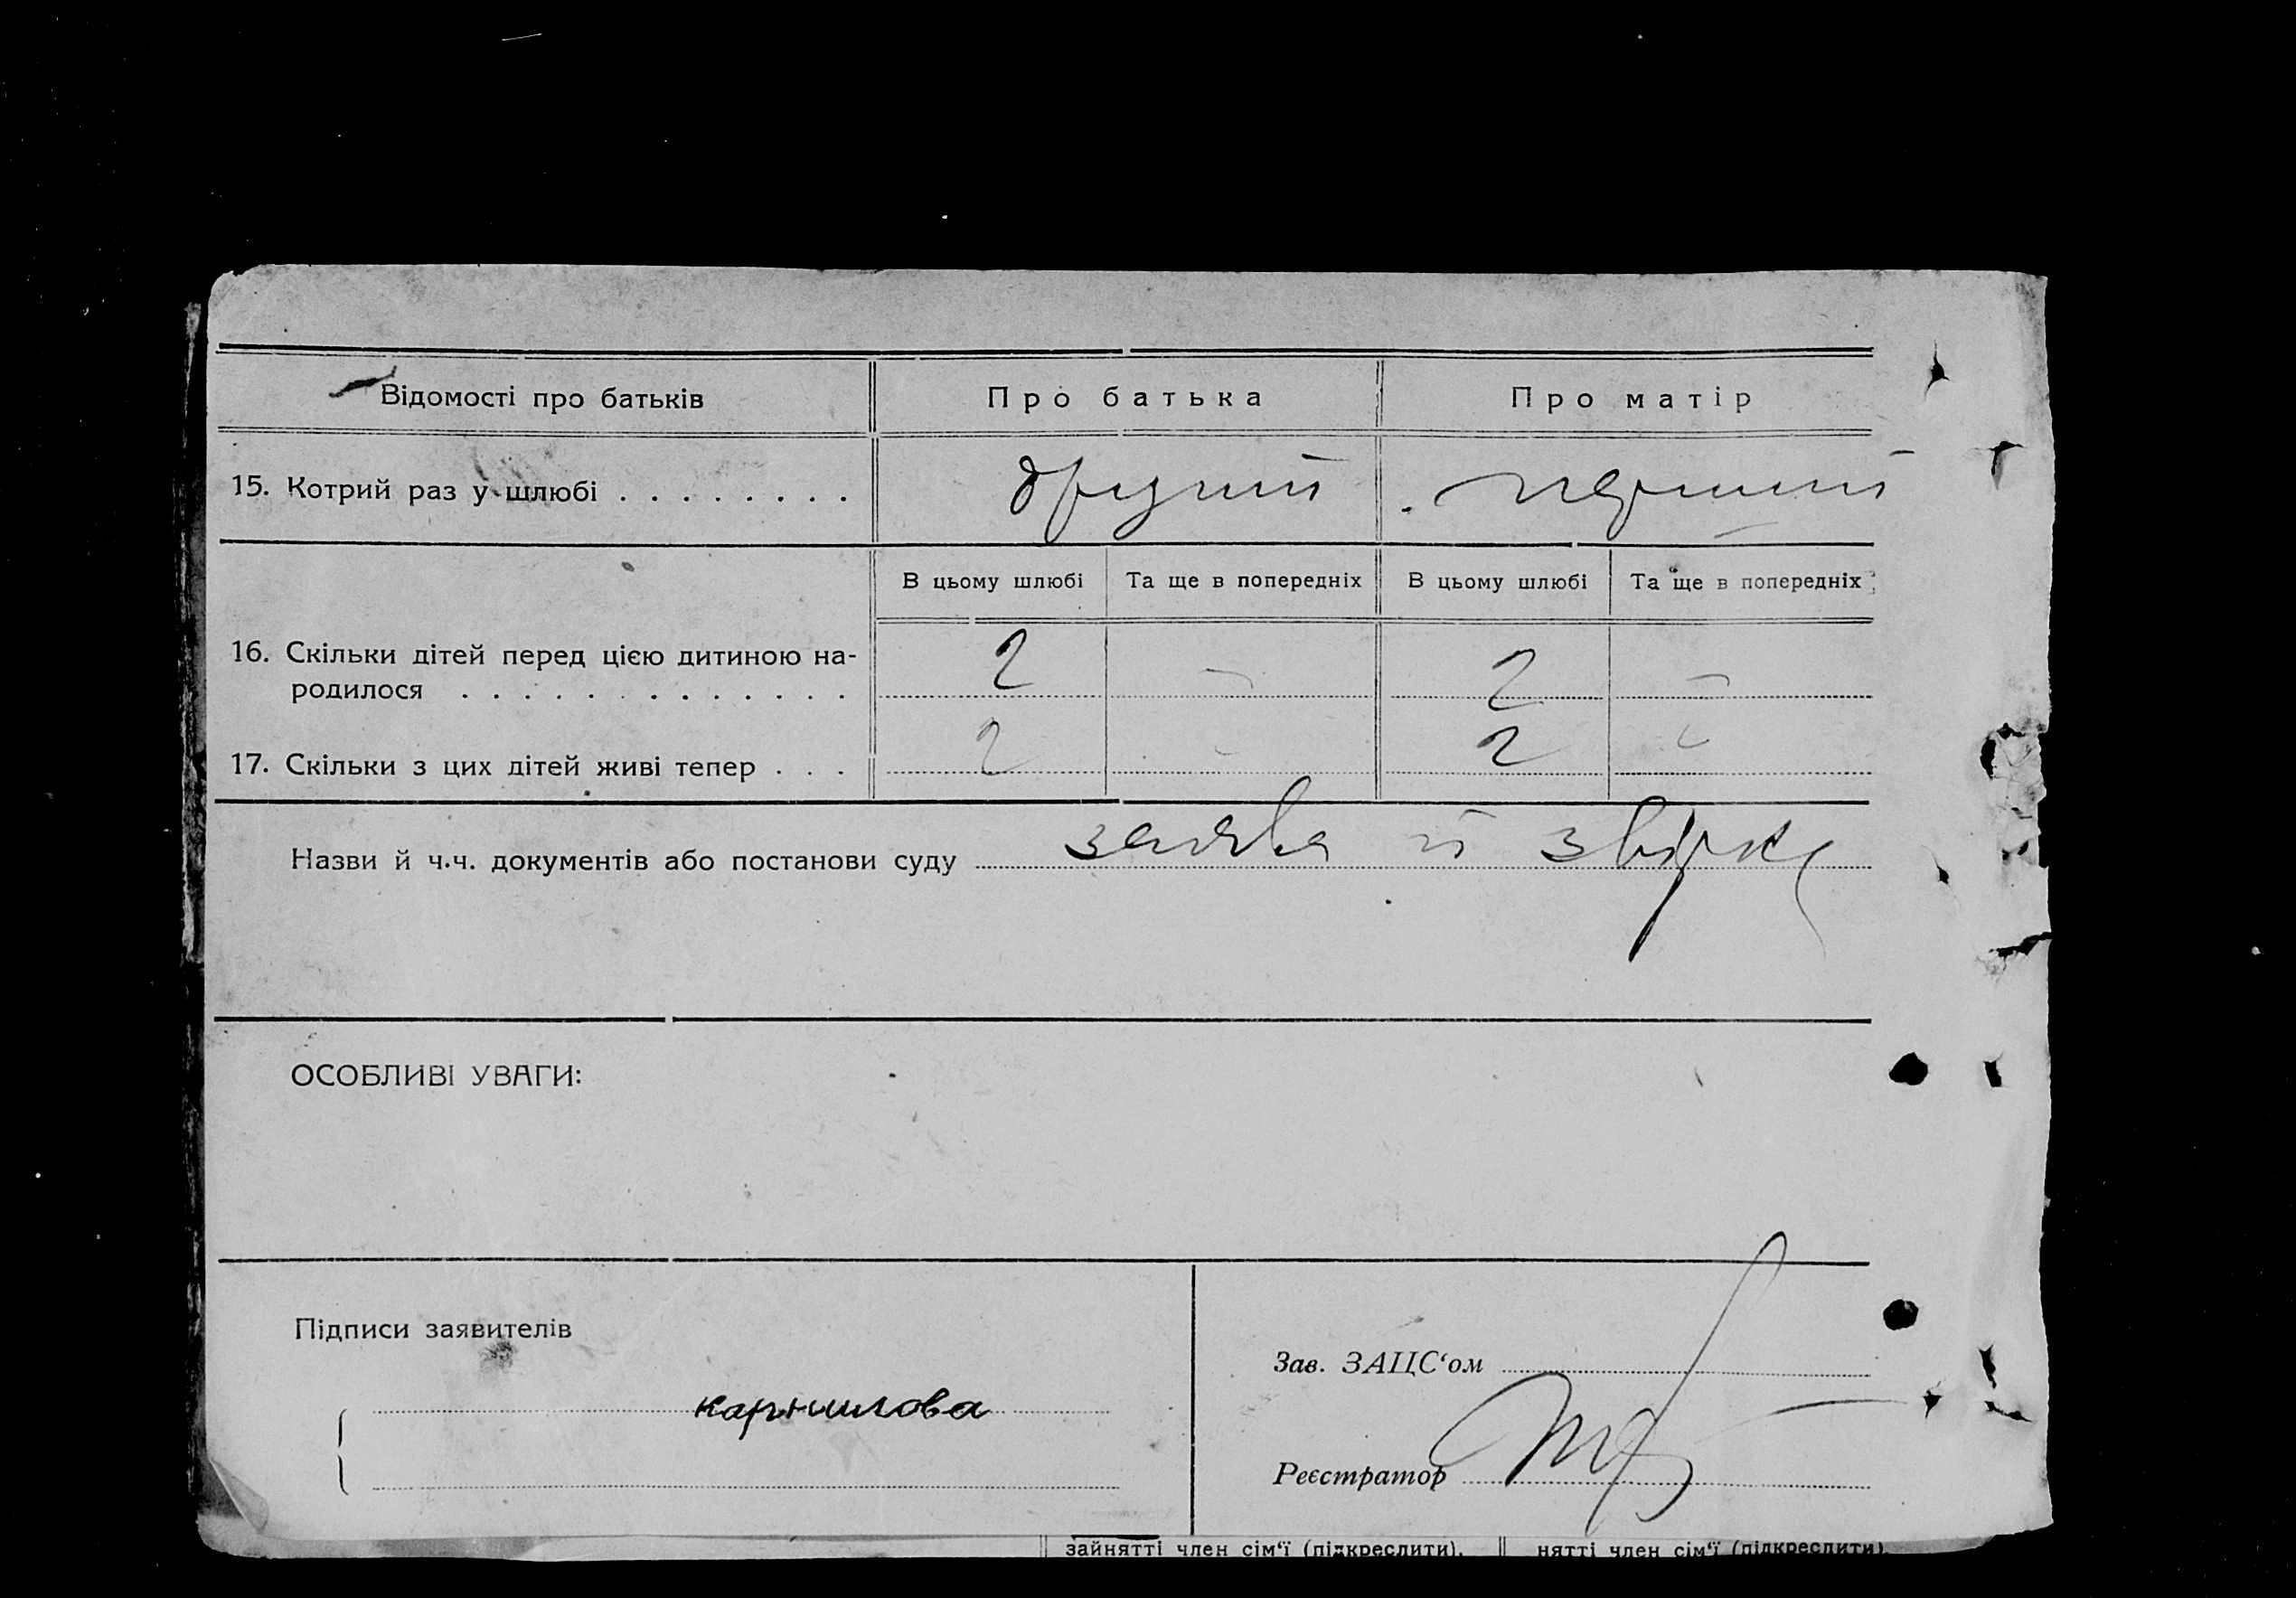 Відомості про батьків Про батька Про матір
15. Котрий раз у шлюбі . . . . . . . . другий перший
В цьому шлюбі Та ще в попередніх В цьому шлюбі Та ще в попередніх
16. Скільки дітей перед цією дитиною на- 2 – 2 –
родилося . . . . . . . . . . . . .
17. Скільки з цих дітей живі тепер . . . 2 - 2 -
Назви й ч.ч. документів або постанови суду заява й звірка
ОСОБЛИВІ УВАГИ:
Підписи заявителів
Зав. ЗАЦС‘ом
карнилова
Реєстратор
зайнятті член сім‘ї (підкреслити). нятті член сім‘ї (підкреслити).